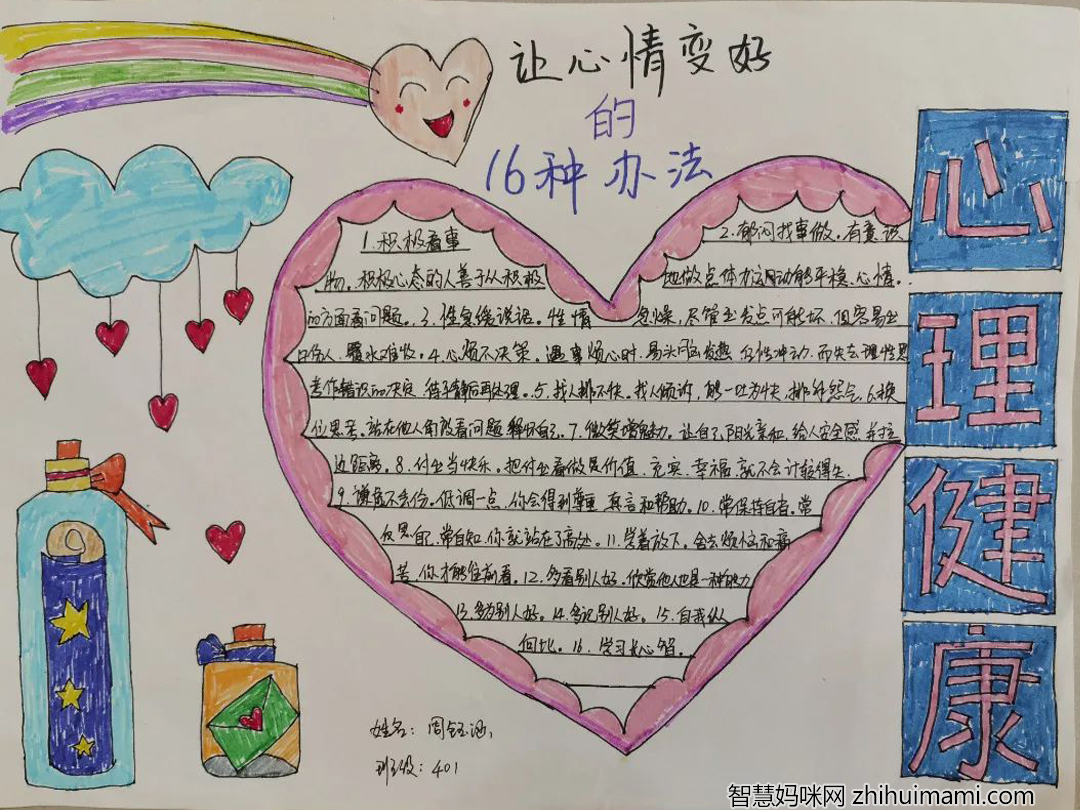 让心情变好
的
16种办法
心
理
健
康
1.积极看事
2.郁闷找事做。有意识
物。积极心态的人善于从积极
地做点体力运动能平稳心情。
的方面看问题。3.性急缓说话。性情
急燥,尽管出发点可能坏,但容易出
口伤人,覆水难收。4.心烦不决策。遇事烦心时,易头脑发热
冲动,而失去理性思
考作错误的决定,待平静后再处理。5.找人排不快。找人倾诉,能一吐为快,排解怨气。6.换
位思考。站在他人角度看问题释怀自己。7.微笑增魅力。让自己阳光亲和,给人安全感,并拉
近距离。8.付出当快乐。把付出看做是价值,充实,幸福,就不会计较得失。
9.谦虚不丢份。低调一点,你会得到尊重,真言和帮助。10.常保持自省。常
反思自己,常自知,你就站在了高处。11.学着放下。舍去烦恼和痛
苦,你才能往前看。12.多看别人好。欣赏他人也是一种能力
13.多为别人好。14.多记别人好。15.自我纵
向比。16.学习长心智。
姓名:周钰涵
班级:401
智慧妈咪网 zhihuimami.com